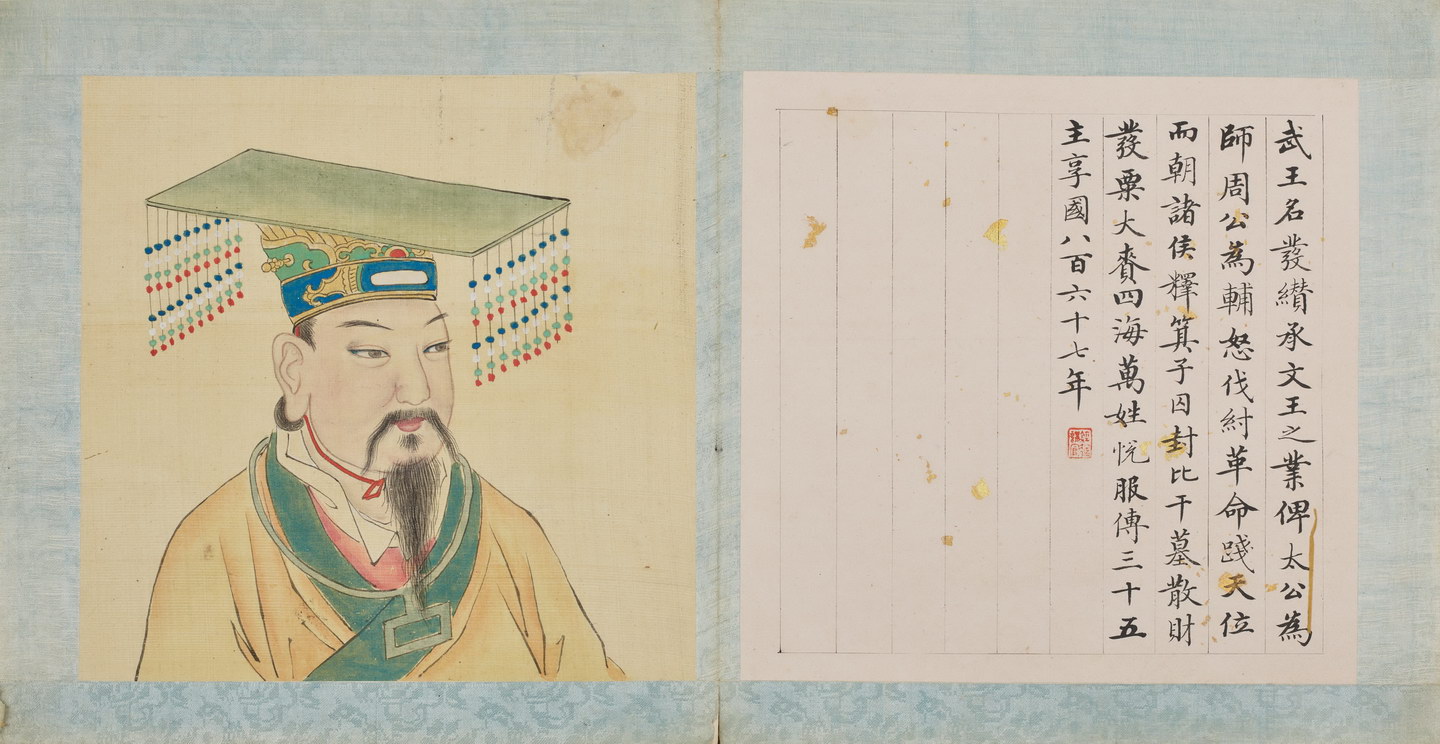 武王名發纉承文王之業俾太公為
師周公為輔怒伐紂革命踐天位
而朝諸侯釋箕子囚封比干墓散財
發粟大賚四海萬姓悅服傳三十五
主享國八百六十七年